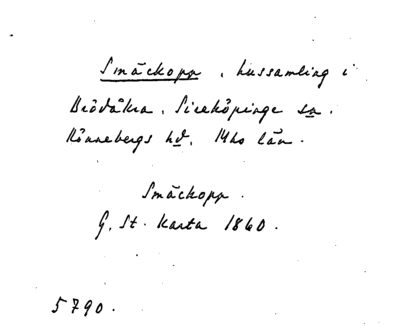 Smäckopp, hussamling i
Brödåkra, Sireköpinge sn.
Rönnebergs hd. Mhs län.
Smäckopp.
G. St. Karta 1860.
5790.